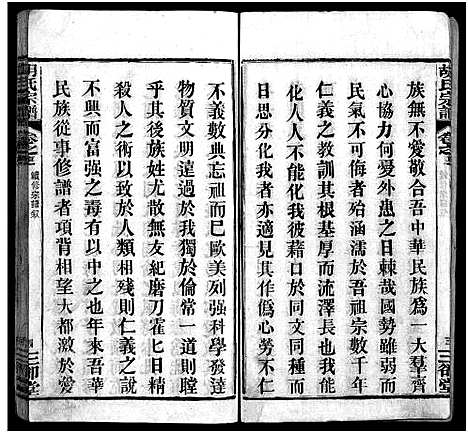 胡氏宗譜
三
族無不愛敬合吾中華民族為一大羣齊
心協力何愛外患之日棘哉國勢雖弱而
民氣不可侮者殆涵濡於吾祖宗數千年
仁義之教訓其根基厚而流澤長也我能
化人人不能化我彼藉口於同文同種而
日思分化我者亦適見其作僞心勞也
不義數典忘祖而已歐美列强科學發達
物質文明遠過於我獨於倫常一道則瞠
乎其後族姓尤散無友紀磨刀霍七日精
殺人之術以致於人類相殘則仁義之說
思想簡單之毒有以中之也年來吾華
民族從事修譜者項背相望大都激於愛
胡氏宗譜
續修宗譜敘
四